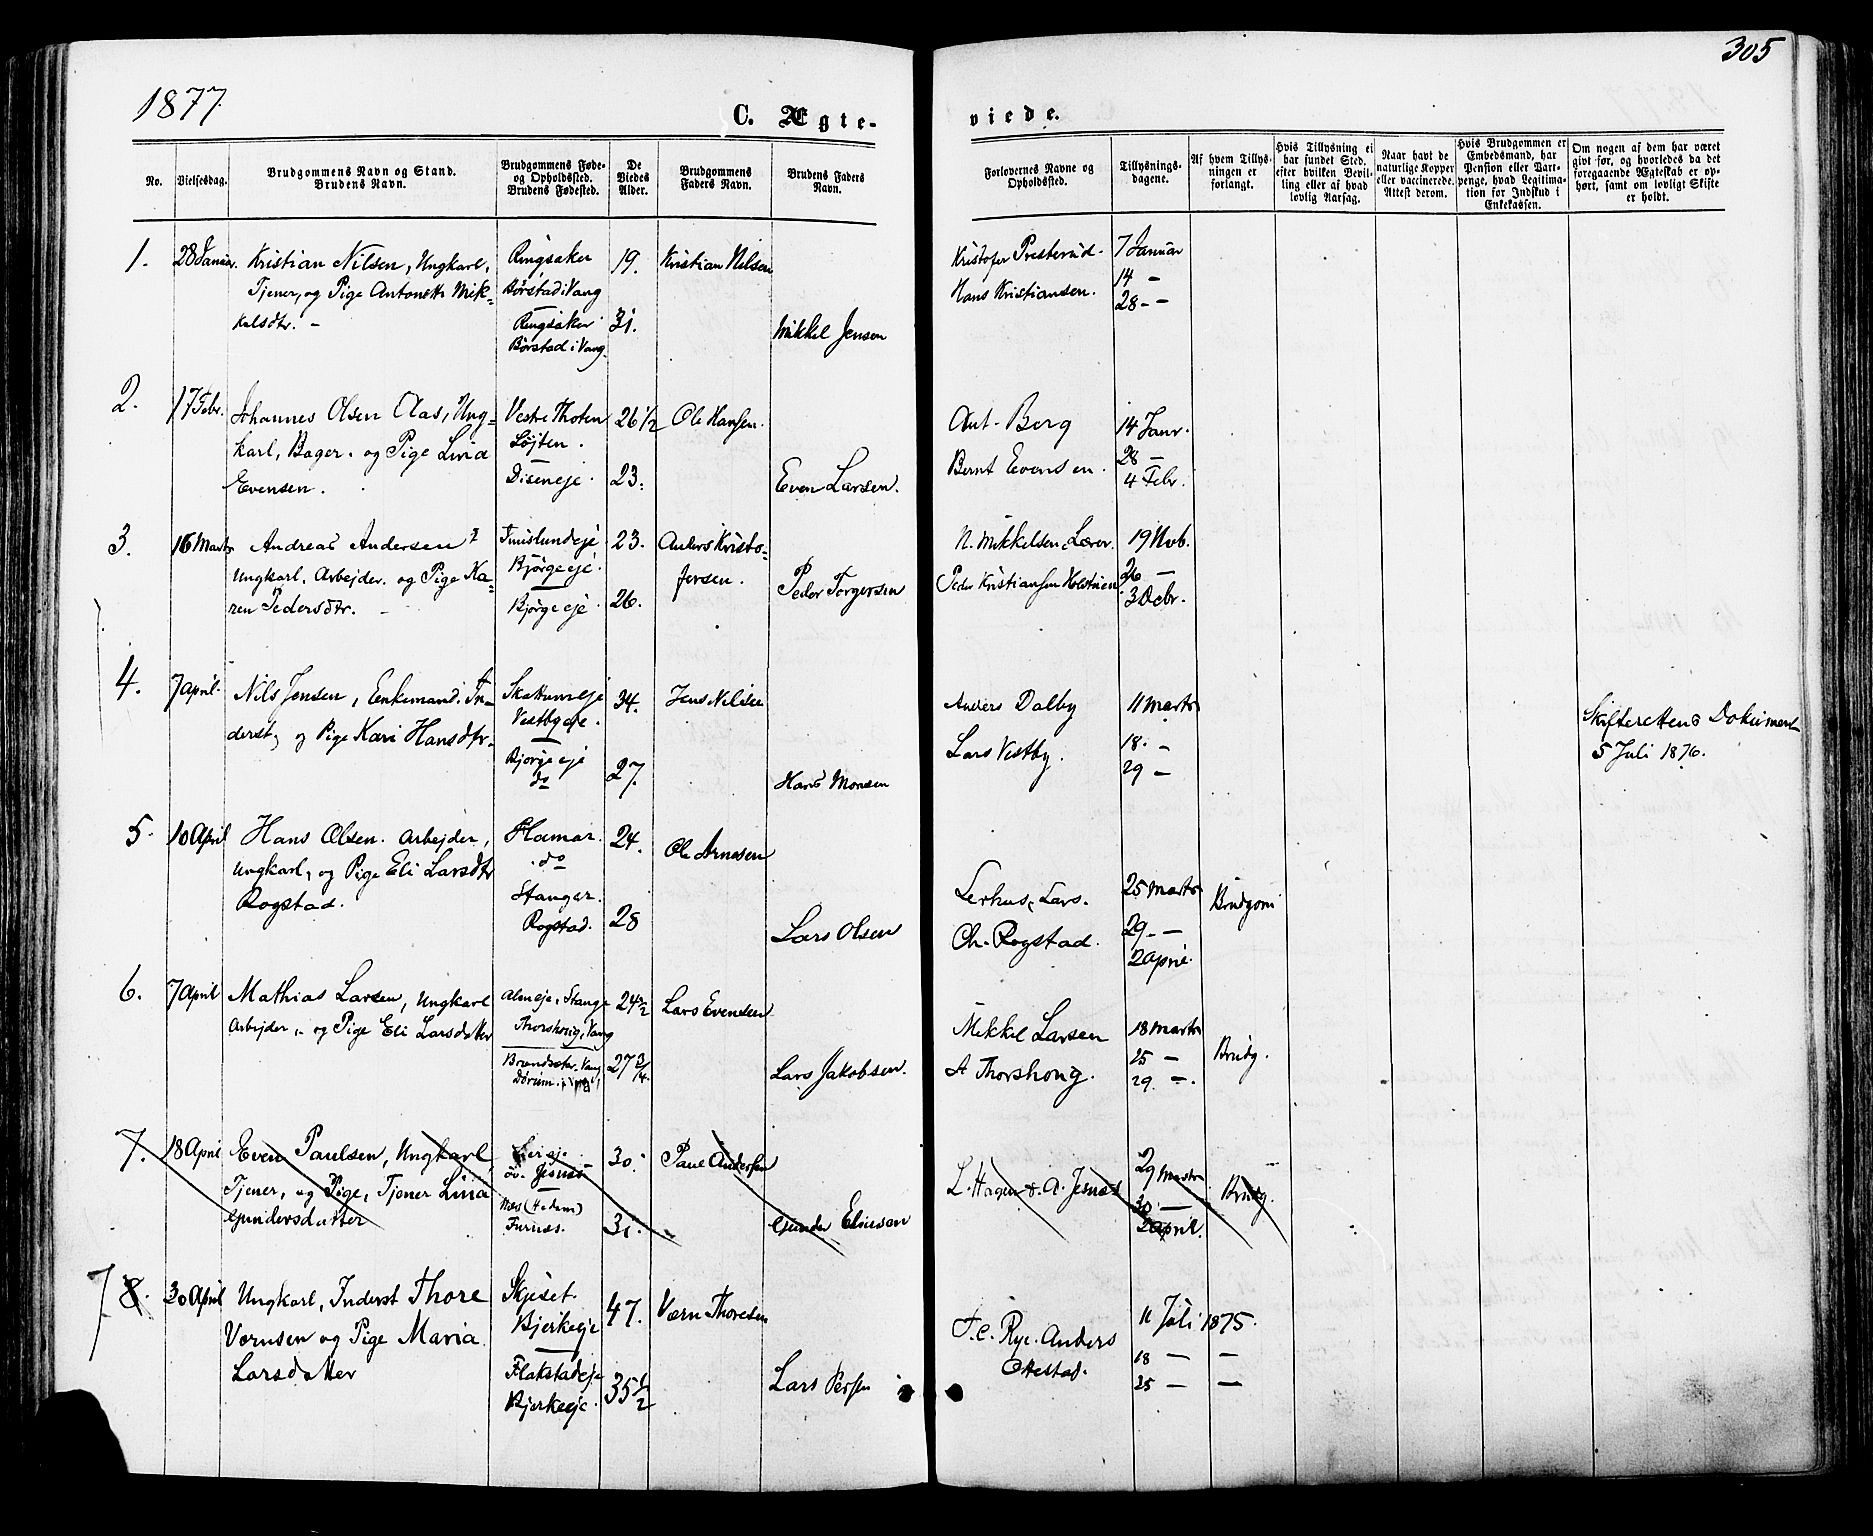 305
1877
C. Ægte- viede.
No.
Vielsesdag.
Brudgommens Navn og Stand.
Brudens Navn.
Brudgommens Føde-
og Opholdssted.
Brudens Fødested.
De
Viedes
Alder.
Brudgommens
Faders Navn.
Brudens Faders
Navn.
Forlovernes Navne og
Opholdssted.
Tillysnings-
dagene.
Af hvem Tillys-
ningen er
forlangt.
Hvis Tillysning ei
har fundet Sted,
efter hvilken Bevil-
ling eller af hvad
lovlig Aarsag.
Naar havt de
naturlige Kopper
eller vaccinerede.
Attest derom.
Hvis Brudgommen er
Embedsmand, har
Pension eller Vart-
penge, hvad Legitima-
tion for Indskud i
Enkekassen.
Om nogen af dem har været
gift før, og hvorledes da det
foregaaende Ægteskab er op-
hørt, samt om lovligt Skifte
er holdt.
1.
28 Januar.
Kristian Nilsen, Ungkarl,
Tjener, og Pige Antonette Mik-
kelsdtr. -
Ringsaker
Børstad i Vang
Ringsaker
Børstad i Vang
19.
31.
Kristian Nilsen
Mikkel Jensen
Kristofer Presterud.
Hans Kristiansen.
7 Januar
14 -
28 - -
2.
17 Febr.
Johannes Olsen Aas, Ung-
karl, Bager. og Pige Lina
Evensen.
Vestre Thoten
Løjten.
Diseneje.
26 1/2
23.
Ole Hansen.
Even Larsen.
Ant. Berg
Bernt Evensen.
14 Janr.
28 -
4 Febr.
3.
16 Marts
Andreas Andersen
Ungkarl, Arbejder. og Pige Ka-
ren Pedersdtr. -
Bjørgeeje.
Bjørgeeje.
23.
26.
Anders Kristo-
fersen.
Peder Torgersen
N. Mikkelsen, Lærer.
Peder Kristiansen
19 Nvb.
26 -
3 Debr.
4.
7 April.
Nils Jensen, Enkemand. In-
derst, og Pige Kari Hansdtr.
Skattumeje
Vestbyeje.
Bjørgeeje
do
34.
27.
Jens Nilsen
Hans Monsen
Anders Dalby
Lars Vestby.
11 Marts
18. -
29 -
Skifterettens Dokument
5 Juli 1876.
5.
10 April
Hans Olsen. Arbejder,
Ungkarl, og Pige Eli Larsdtr
Rogstad.
Hamar.
do
Stanger.
Rogstad.
24.
28
Ole Arnesen
Lars Olsen
Lerhus, Lars.
Ch. Rogstad.
25 Marts
29. -
2 April.
Brudgom
6.
7 April
Mathias Larsen, Ungkarl
Arbejder, - og Pige Eli Larsdatter
Almeje, Stange
Thorshoug, Vang
Brandsæter, Vang
24 1/2
27 3/4.
Lars Evensen
Lars Jakobsen.
Mikkel Larsen
A Thorshoug.
18 Marts
25 -
29. -.
Brudg.
7.
18 April
Even Paulsen, Ungkarl,
Tjener, og Pige, Tjener Lina
Gundersdatter
øv. Jesnæs
Næs (Hedem)
Furnæs.
30.
31.
Paul Andersen
Gunder Eliesen
L. Hagen & A. Jesnæs
29 Marts
30 -
2 April.
Brudg.
7 8.
30 April
Ungkarl, Inderst Thore
Værnsen og Pige Maria
Larsdatter
Skjeset.
Bjerkeeje
Flakstadeje
Bjerkeeje.
47.
35 1/2
Værn Thoresen
Lars Persen
F. C. Rye. Anders
Ottestad.
11 Juli 1875.
18 - -
25 - -